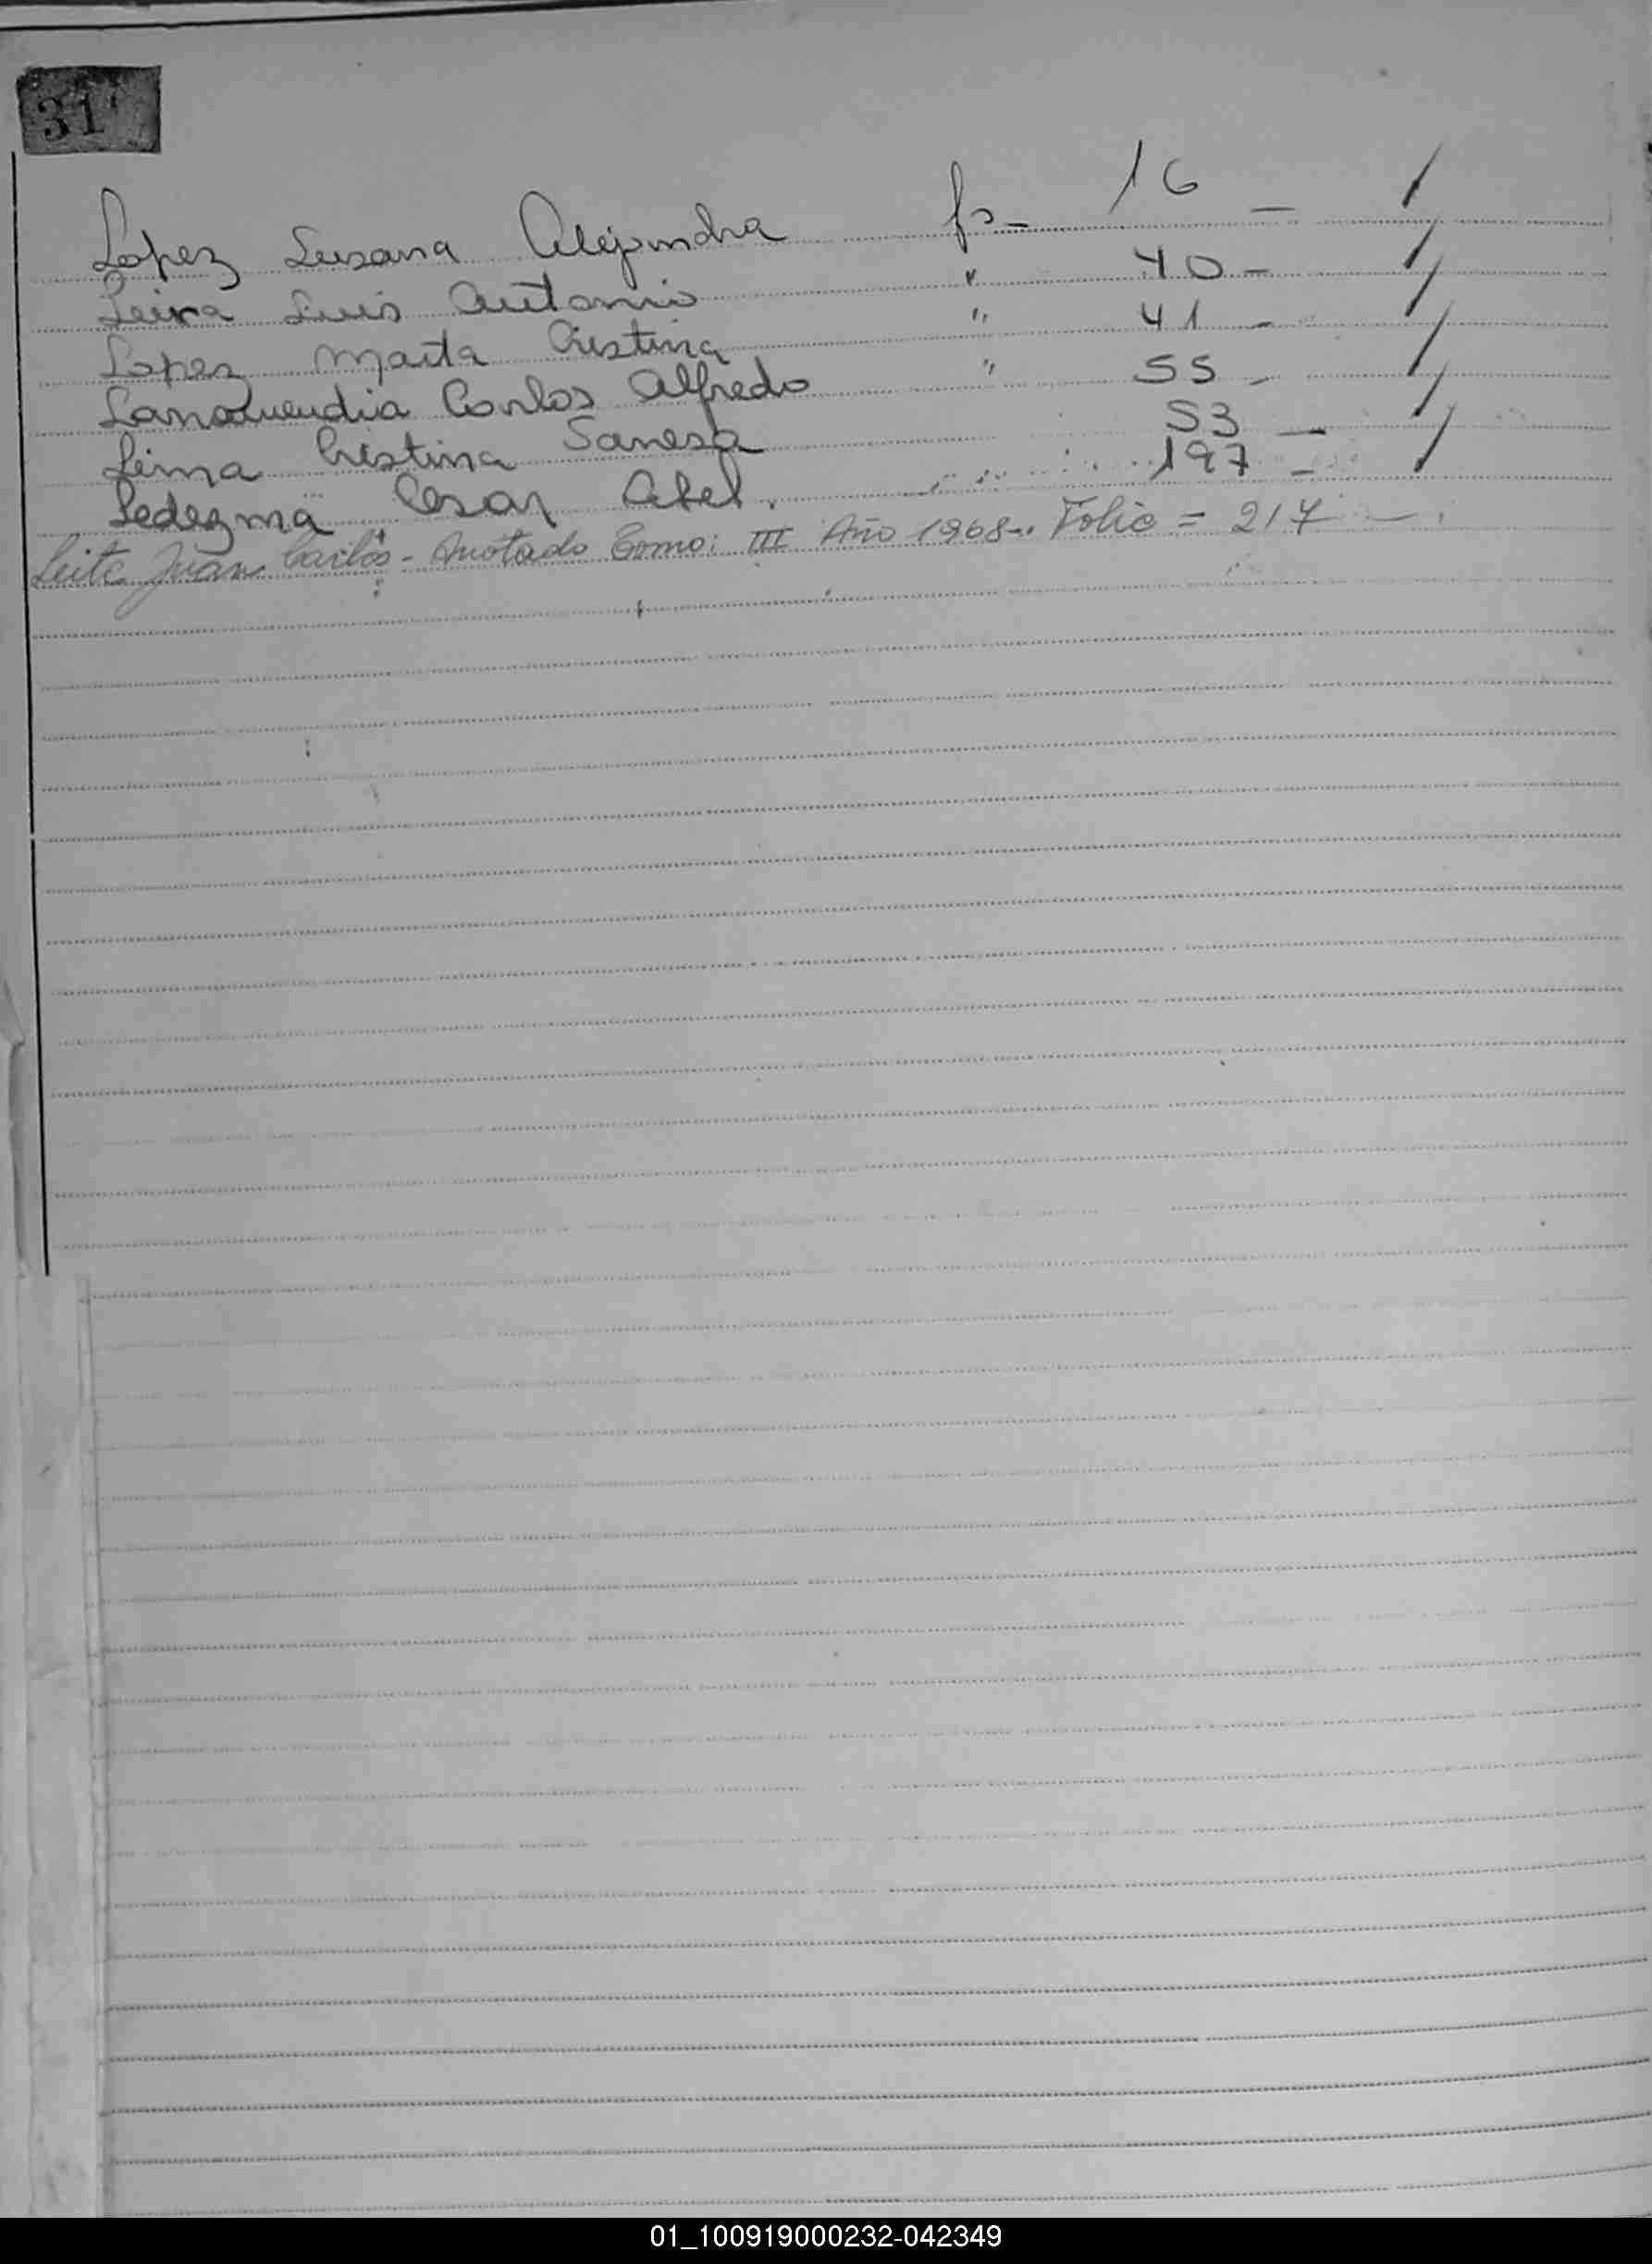 31
Lopez Susana Alejandra fs- 16 -
Leiva Luis Antonio " 40 -
Lopez Marta Cristina " 41 -
Carlos Alfredo " 55 -
Lima Cristina Sanesa 53 -
Ledezma Cesar Abel. 197 -
Leite Juan Carlos - Anotado Tomo: III Año 1968-. Folio = 217 -.
01_100919000232-042349